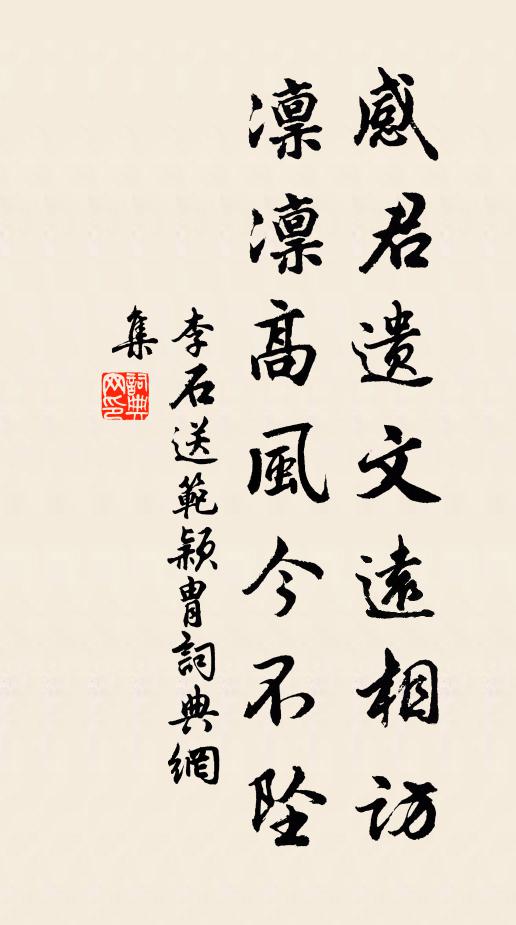 感君遺文遠相訪
凛凛高風今不坠
李石送範穎胄詞典網
集
詞典
网印